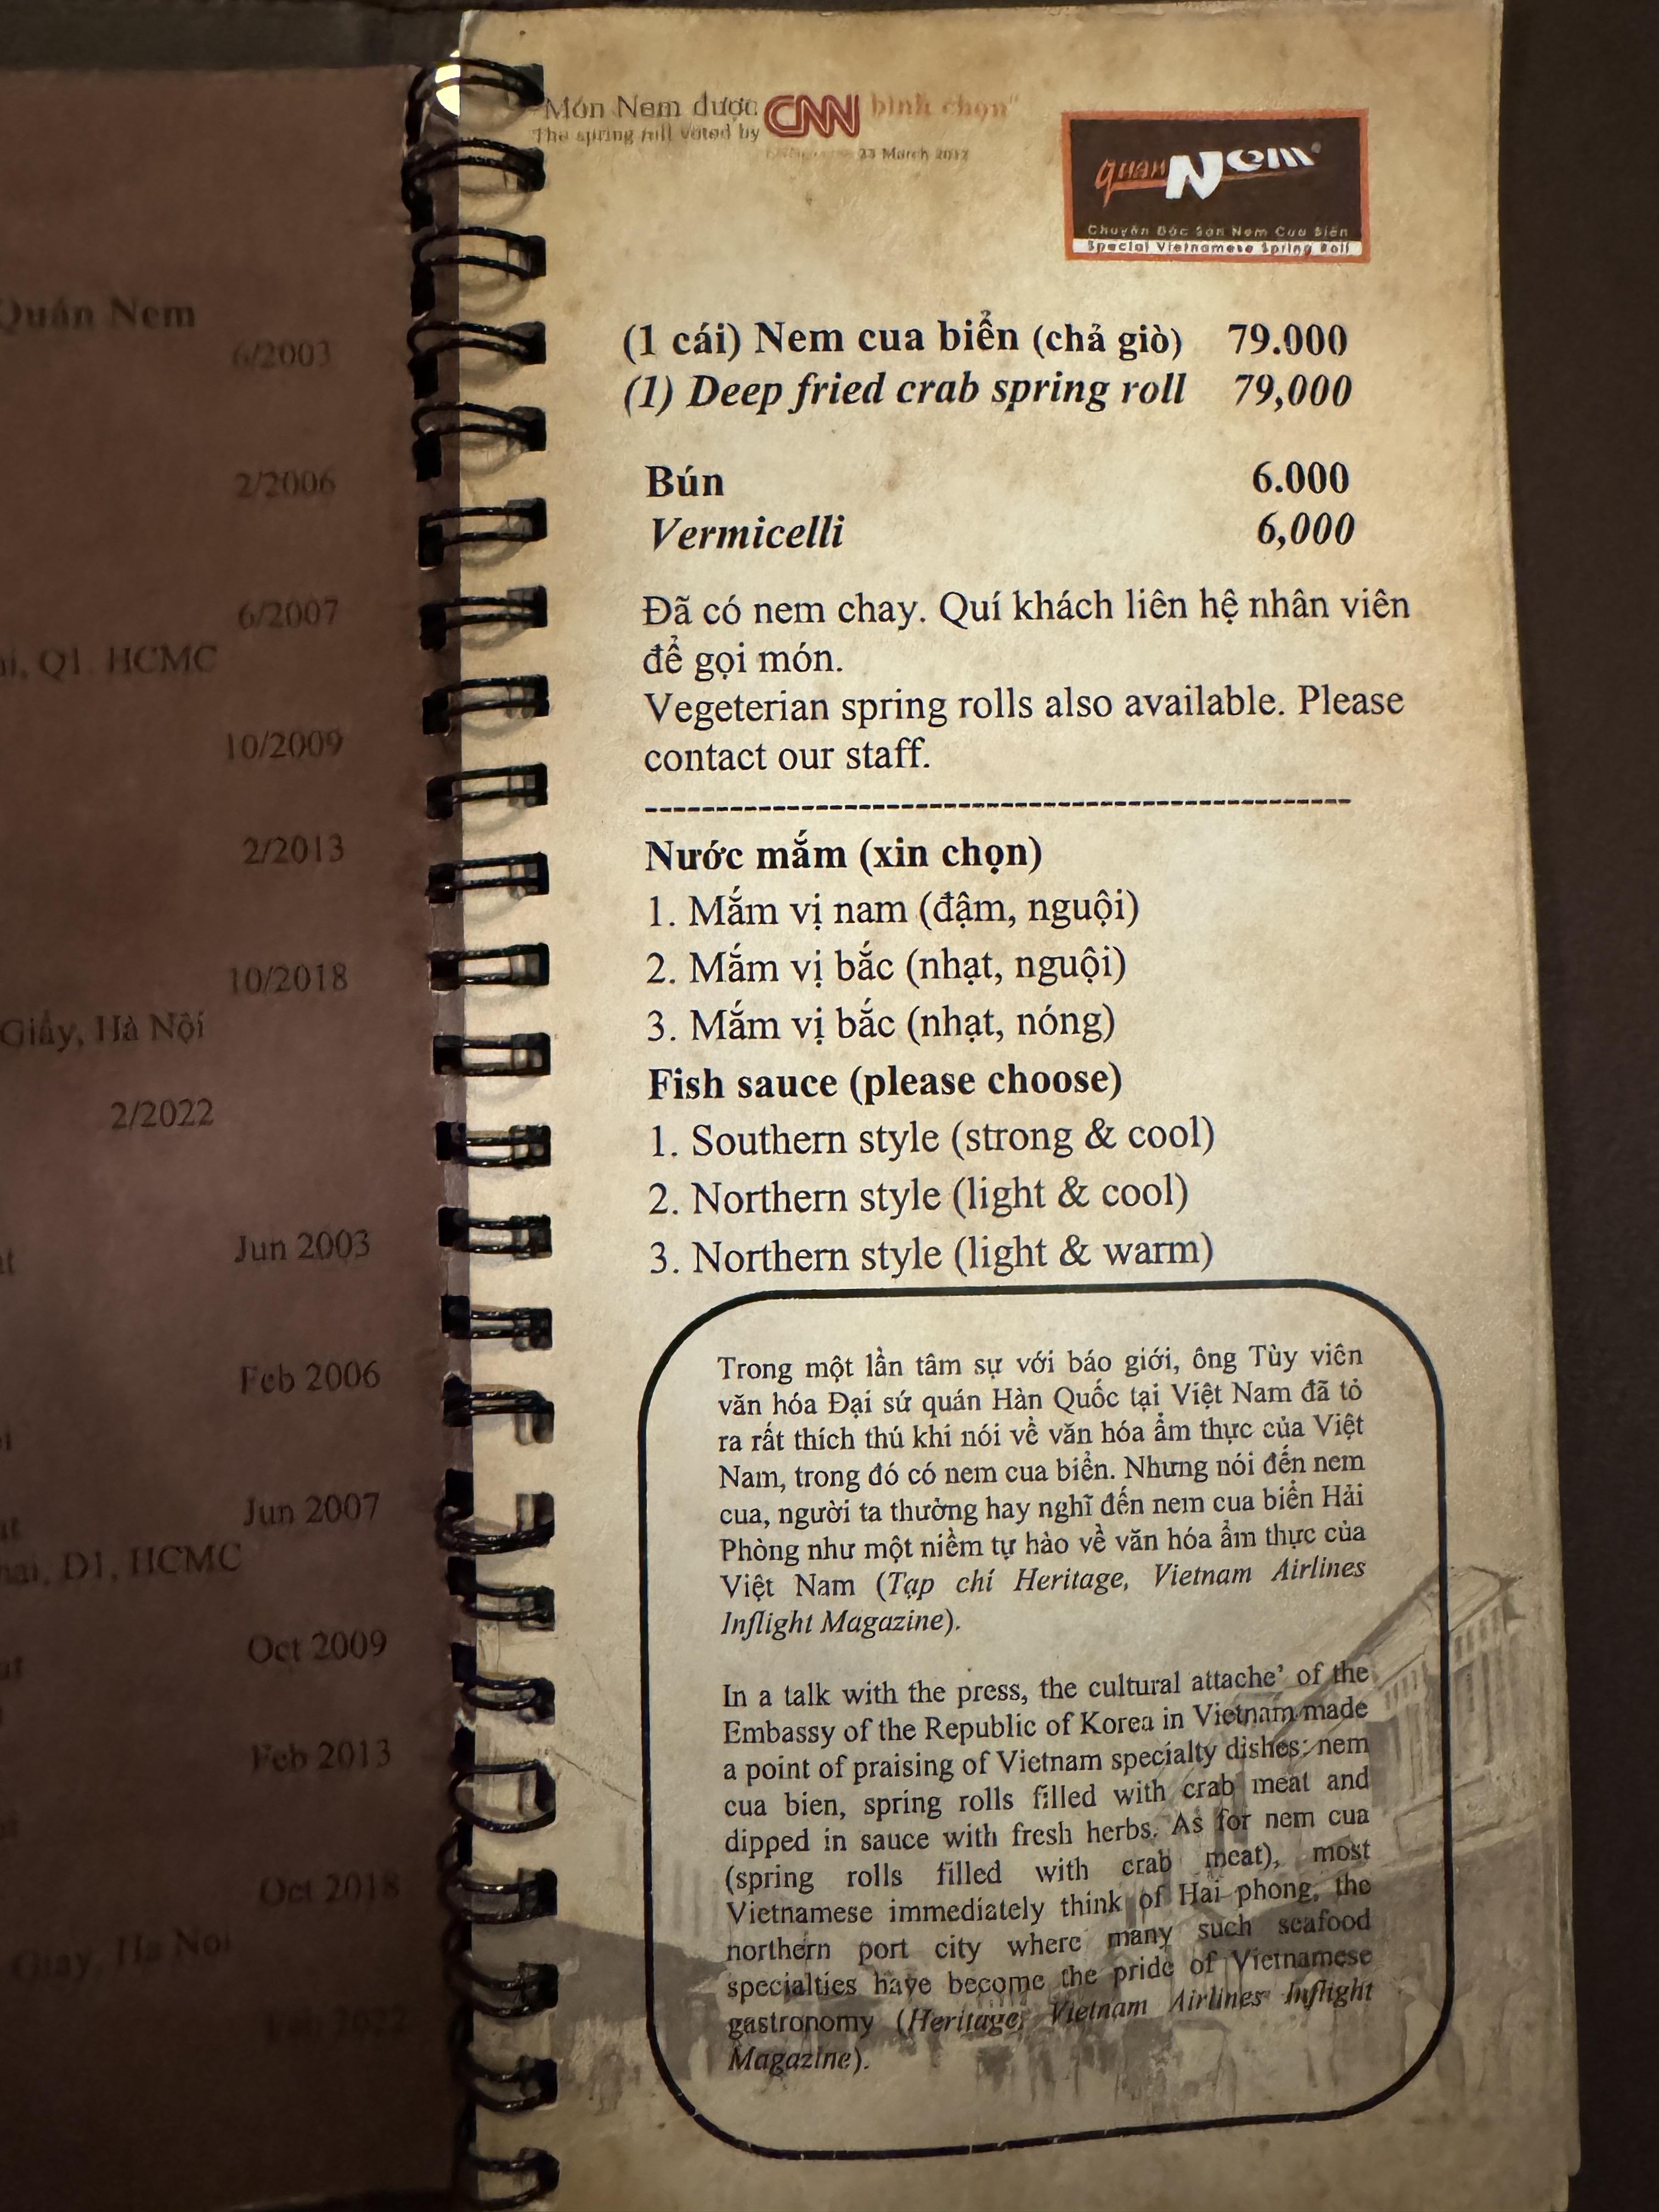 Quán Nem
6/2003
2/2006
6/2007
Q1. HCMC
10/2009
2/2013
10/2018
Giấy, Hà Nội
2/2022
Jun 2003
Feb 2006
Jun 2007
D1, HCMC
Oct 2009
Feb 2013
Oct 2018
Giay, Ha Noi
Feb 2022
"Món Nem được CNN bình chọn"
The spring roll voted by
23 March 2012
quán Nem
Chuyên Đặc Sản Nem Cua Biển
Special Vietnamese Spring Roll
(1 cái) Nem cua biển (chả giò) 79.000
(1) Deep fried crab spring roll 79,000
Bún 6.000
Vermicelli 6,000
Đã có nem chay. Quí khách liên hệ nhân viên
để gọi món.
Vegeterian spring rolls also available. Please
contact our staff.
Nước mắm (xin chọn)
1. Mắm vị nam (đậm, nguội)
2. Mắm vị bắc (nhạt, nguội)
3. Mắm vị bắc (nhạt, nóng)
Fish sauce (please choose)
1. Southern style (strong & cool)
2. Northern style (light & cool)
3. Northern style (light & warm)
Trong một lần tâm sự với báo giới, ông Tùy viên
văn hóa Đại sứ quán Hàn Quốc tại Việt Nam đã tỏ
ra rất thích thú khi nói về văn hóa ẩm thực của Việt
Nam, trong đó có nem cua biển. Nhưng nói đến nem
cua, người ta thường hay nghĩ đến nem cua biển Hải
Phòng như một niềm tự hào về văn hóa ẩm thực của
Việt Nam (Tạp chí Heritage, Vietnam Airlines
Inflight Magazine).
In a talk with the press, the cultural attache' of the
Embassy of the Republic of Korea in Vietnam made
a point of praising of Vietnam specialty dishes: nem
cua bien, spring rolls filled with crab meat and
dipped in sauce with fresh herbs. As for nem cua
(spring rolls filled with crab meat), most
Vietnamese immediately think of Hai phong, the
northern port city where many such seafood
specialties have become the pride of Vietnamese
gastronomy (Heritage, Vietnam Airlines Inflight
Magazine).